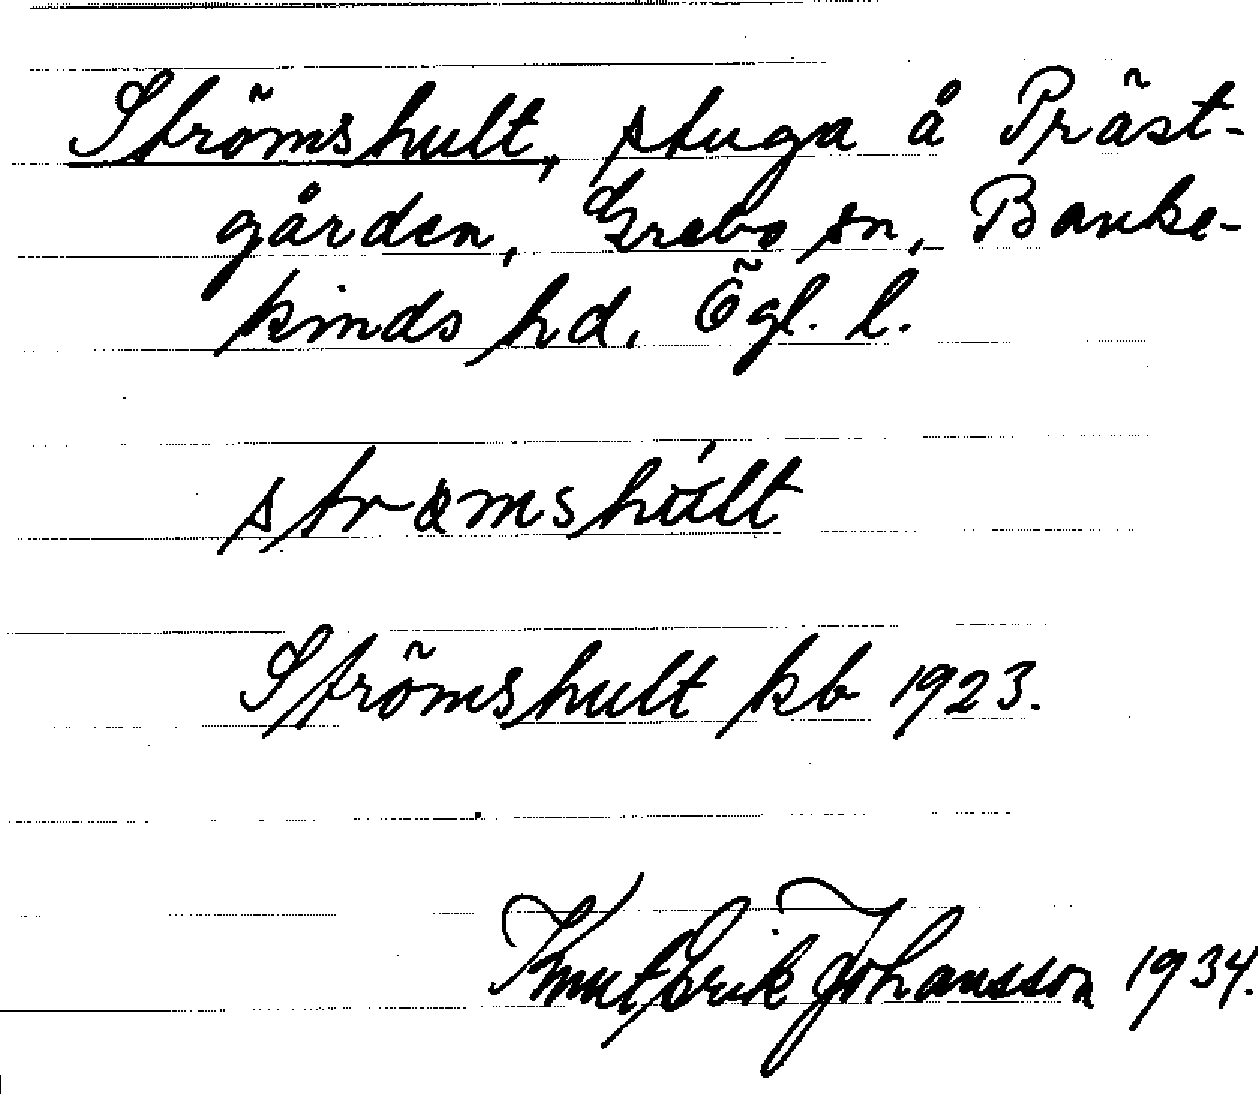 Strömshult, stuga å Präst-
gården, Grebo sn, Banke-
kinds hd. Ögl. l.
strømshúlt
Strömshult kb 1923.
Knut Erik Johansson 1934.